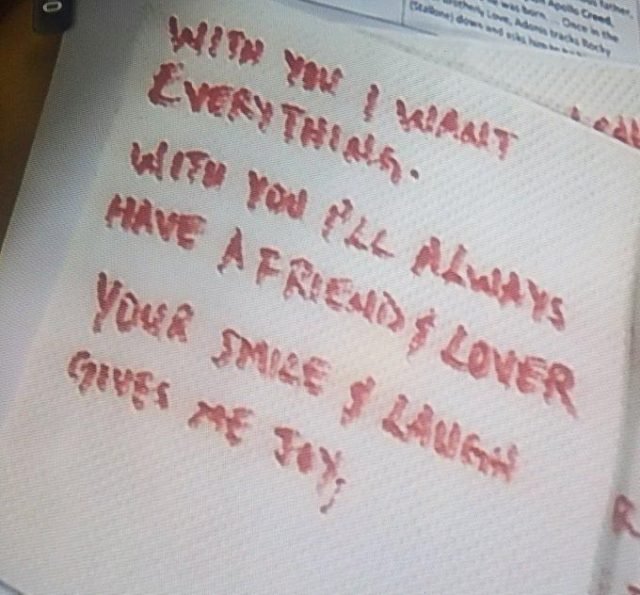 WITH YOU I WANT
EVERYTHING.
WITH YOU I'LL ALWAYS
HAVE A FRIEND & LOVER
YOUR SMILE & LAUGH
GIVES ME JOY;
father
Apollo Creed
was born. Once in the
Brotherly Love, Adonis tracks Rocky
(Stallone) down and asks him
R